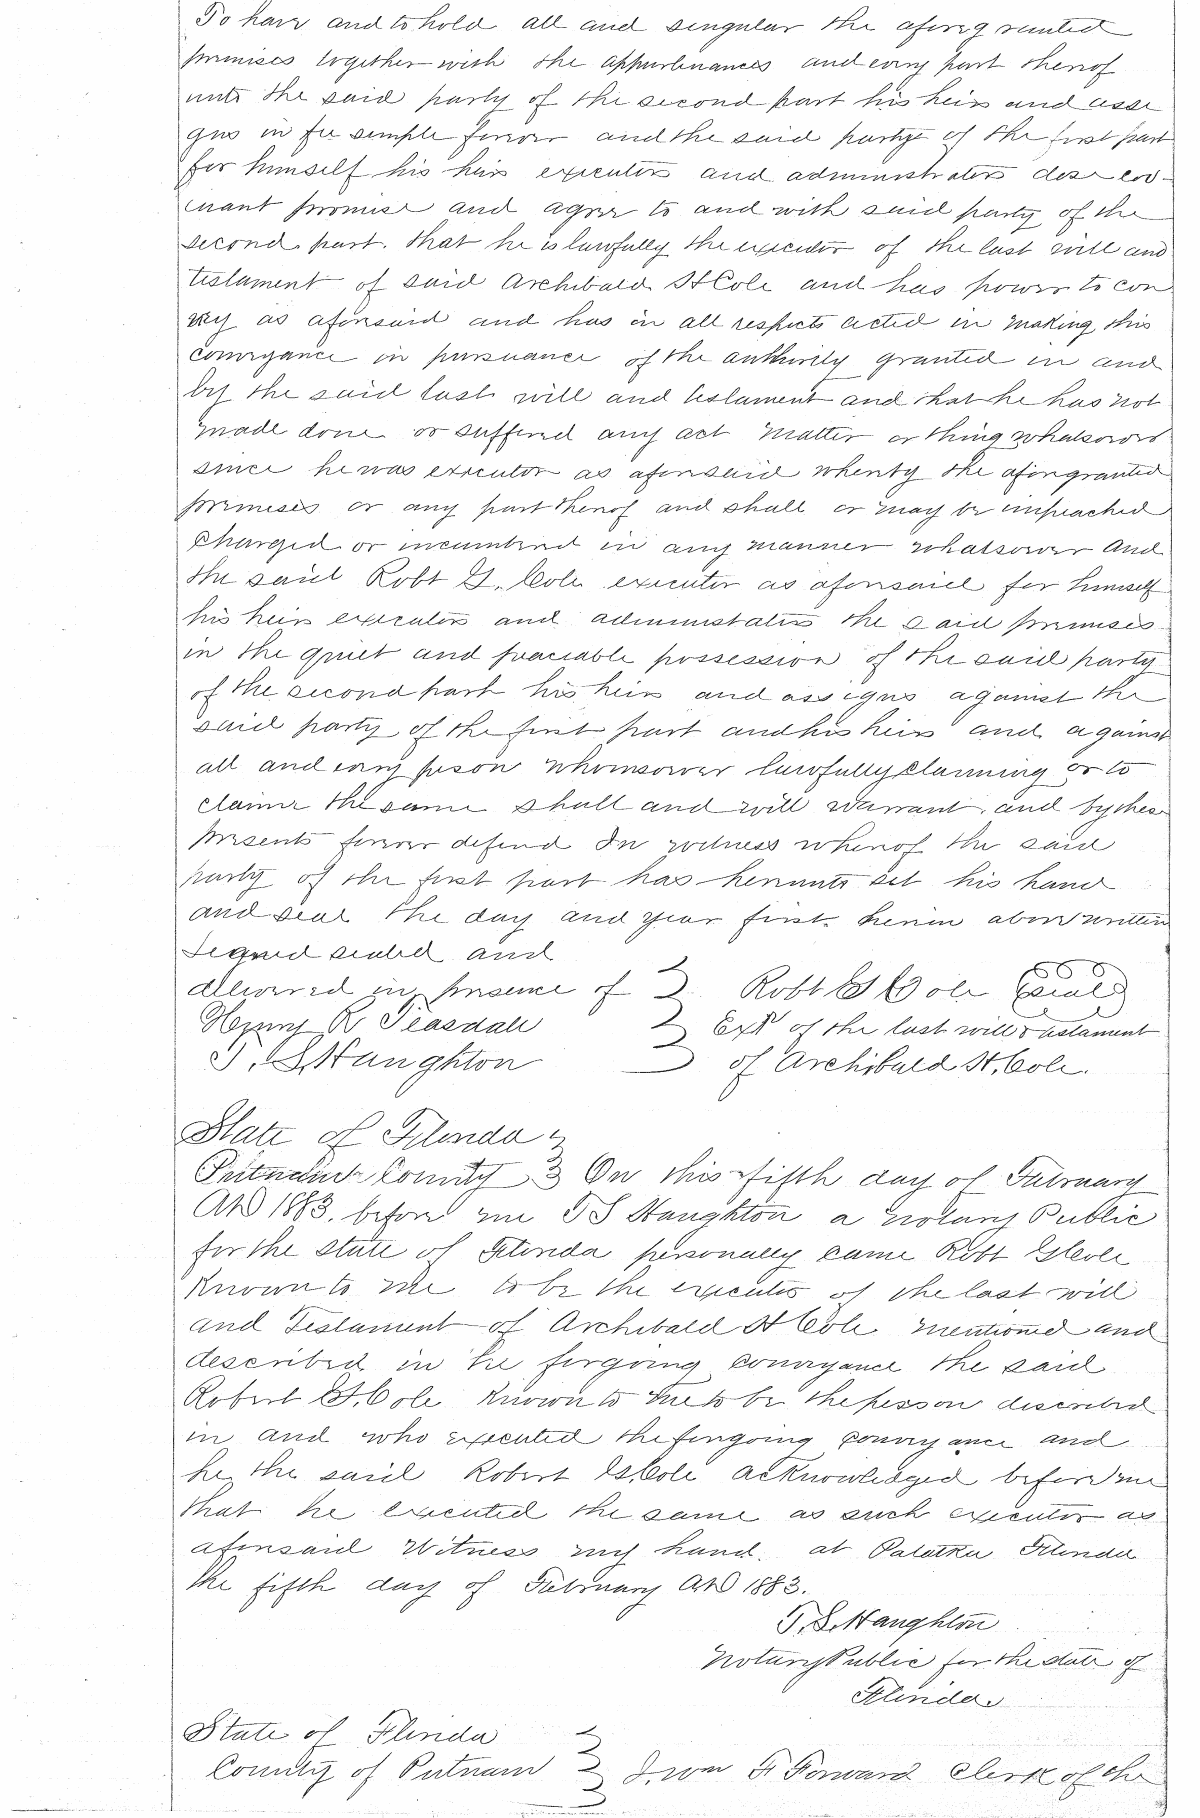 To have and to hold all and singular the aforegranted
premises together with the appurtenances and every part thereof
unto the said party of the second part his heirs and assi
gns in fee simple forever and the said party of the first part
for himself his heirs executors and administrators does cov-
enant promise and agree to and with said party of the
second part. that he is lawfully the executor of the last will and
testament of said Archibald H Cole and has power to con
vey as aforesaid and has in all respects acted in making this
conveyance in pursuance of the authority granted in and
by the said last will and testament and that he has not
made done or suffered any act matter or thing whatsoever
since he was executor as aforesaid whereby the aforegranted
premises or any part thereof and shall or may be impeached
charged or incumbered in any manner whatsoever And
the said Robt G. Cole executor as aforesaid for himself
his heirs executors and administrators the said premises
in the quiet and peaceable possession of the said party
of the second part his heirs and assigns against the
said party of the first part and his heirs and against
all and every person whomsoever lawfully claiming or to
claim the same shall and will warrant and by these
presents forever defend In witness whereof the said
party of the first part has hereunto set his hand
and seal the day and year first herein above written
Signed sealed and
delivered in presence of Robt G Cole Seal
Henry R Teasdale Exr of the last will & testament
T. S Haughton of Archibald H. Cole.
State of Florida
Putnam County On this fifth day of February
AD 1883. before me T S Haughton a notary Public
for the state of Florida personally came Robt G Cole
Known to me to be the executor of the last will
and Testament of Archibald H Cole mentioned and
described in the forgoing conveyance the said
Robert G. Cole Known to me to be the person described
in and who executed the forgoing conveyance and
he the said Robert G. Cole acknowledged before me
that he executed the same as such executor as
aforesaid Witness my hand. at Palatka Florida
the fifth day of February AD 1883.
T. S. Haughton
Notary Public for the state of
Florida
State of Florida
County of Putnam I, Wm F Forward Clerk of the